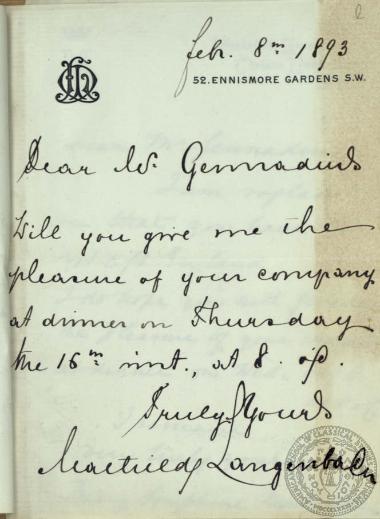 feb. 8th 1893
52. ENNISMORE GARDENS S.W.
Dear Mr. Gennadius
Will you give me the
pleasure of your company
at dinner on Thursday
the 16th inst., at 8. o/c.
Truly Yours
Mathilde Langenbach